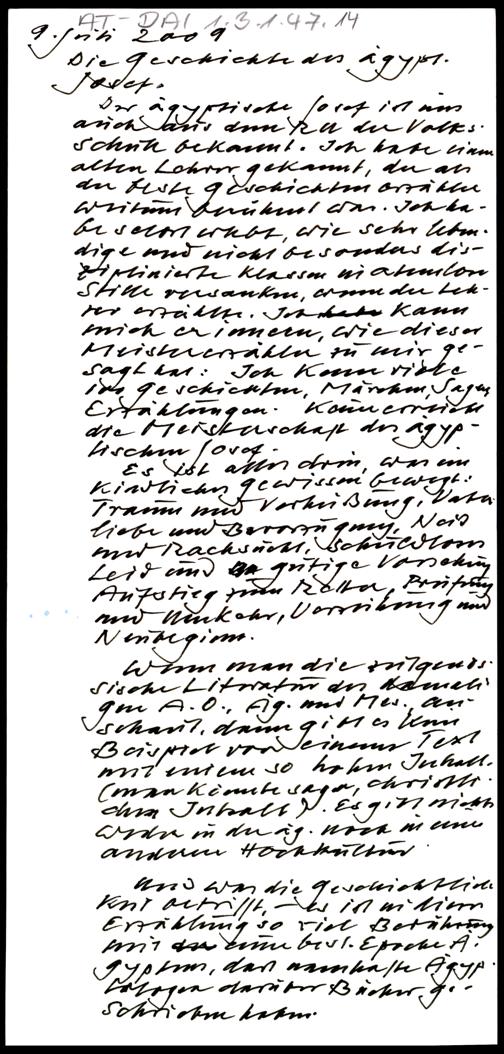 AT-DAI 1.3.1.47.14
9. Juli 2009
Die Geschichte des ägypt.
Josef.
Der ägyptische Josef ist uns
auch aus dem RU der Volks-
schule bekannt. Ich habe einen
alten Lehrer gekannt, der als
der beste Geschichtenerzähler
weitum berühmt war. Ich ha-
be selbst erlebt, wie sehr leben-
dige und nicht besonders dis-
ziplinierte Klassen in atemlose
Stille versanken, wenn der Leh-
rer erzählte. Ich kann
mich erinnern, wie dieser
Meistererzähler zu mir ge-
sagt hat: Ich kenne viele
Geschichten, Märchen, Sagen,
Erzählungen. Keine erreicht
die Meisterschaft des ägyp-
tischen Josef.
Es ist alles drin, was ein
kindliches Gewissen bewegt:
Traum und Verheißung, Vater-
liebe und Bevorzugung, Neid
und Rachsucht, schuldloses
Leid und gütige Vorsehung
Aufstieg zum Retter, Prüfung
und Umkehr, Verzeihung und
Neubeginn.
Wenn man die zeitgenös-
sische Literatur des damali-
gen A.O., Äg. und Mes., an-
schaut, dann gibt es kein
Beispiel von einem Text
mit einem so hohen Inhalt.
(man könnte sagen, christli-
chem Inhalt). Es gibt nichts
weder in der äg. noch in einer
anderen Hochkultur.
Und was die Geschichtlich-
keit betrifft, – es ist in dieser
Erzählung so viel Berührung
mit einer best. Epoche Ä-
gyptens, dass namhafte Ägyp-
tologen darüber Bücher ge-
schrieben haben.